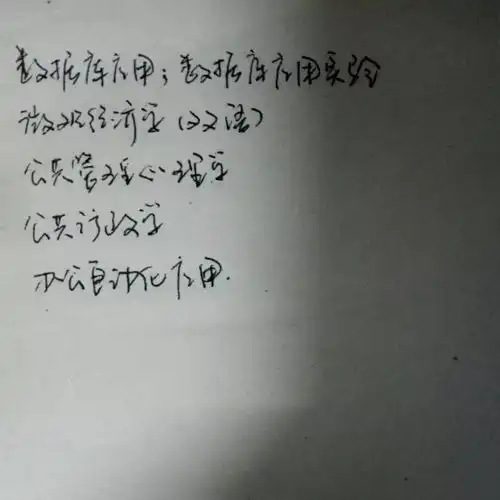 数据库应用；数据库应用实验
微观经济学（双语）
公共管理心理学
公共行政学
办公自动化应用.